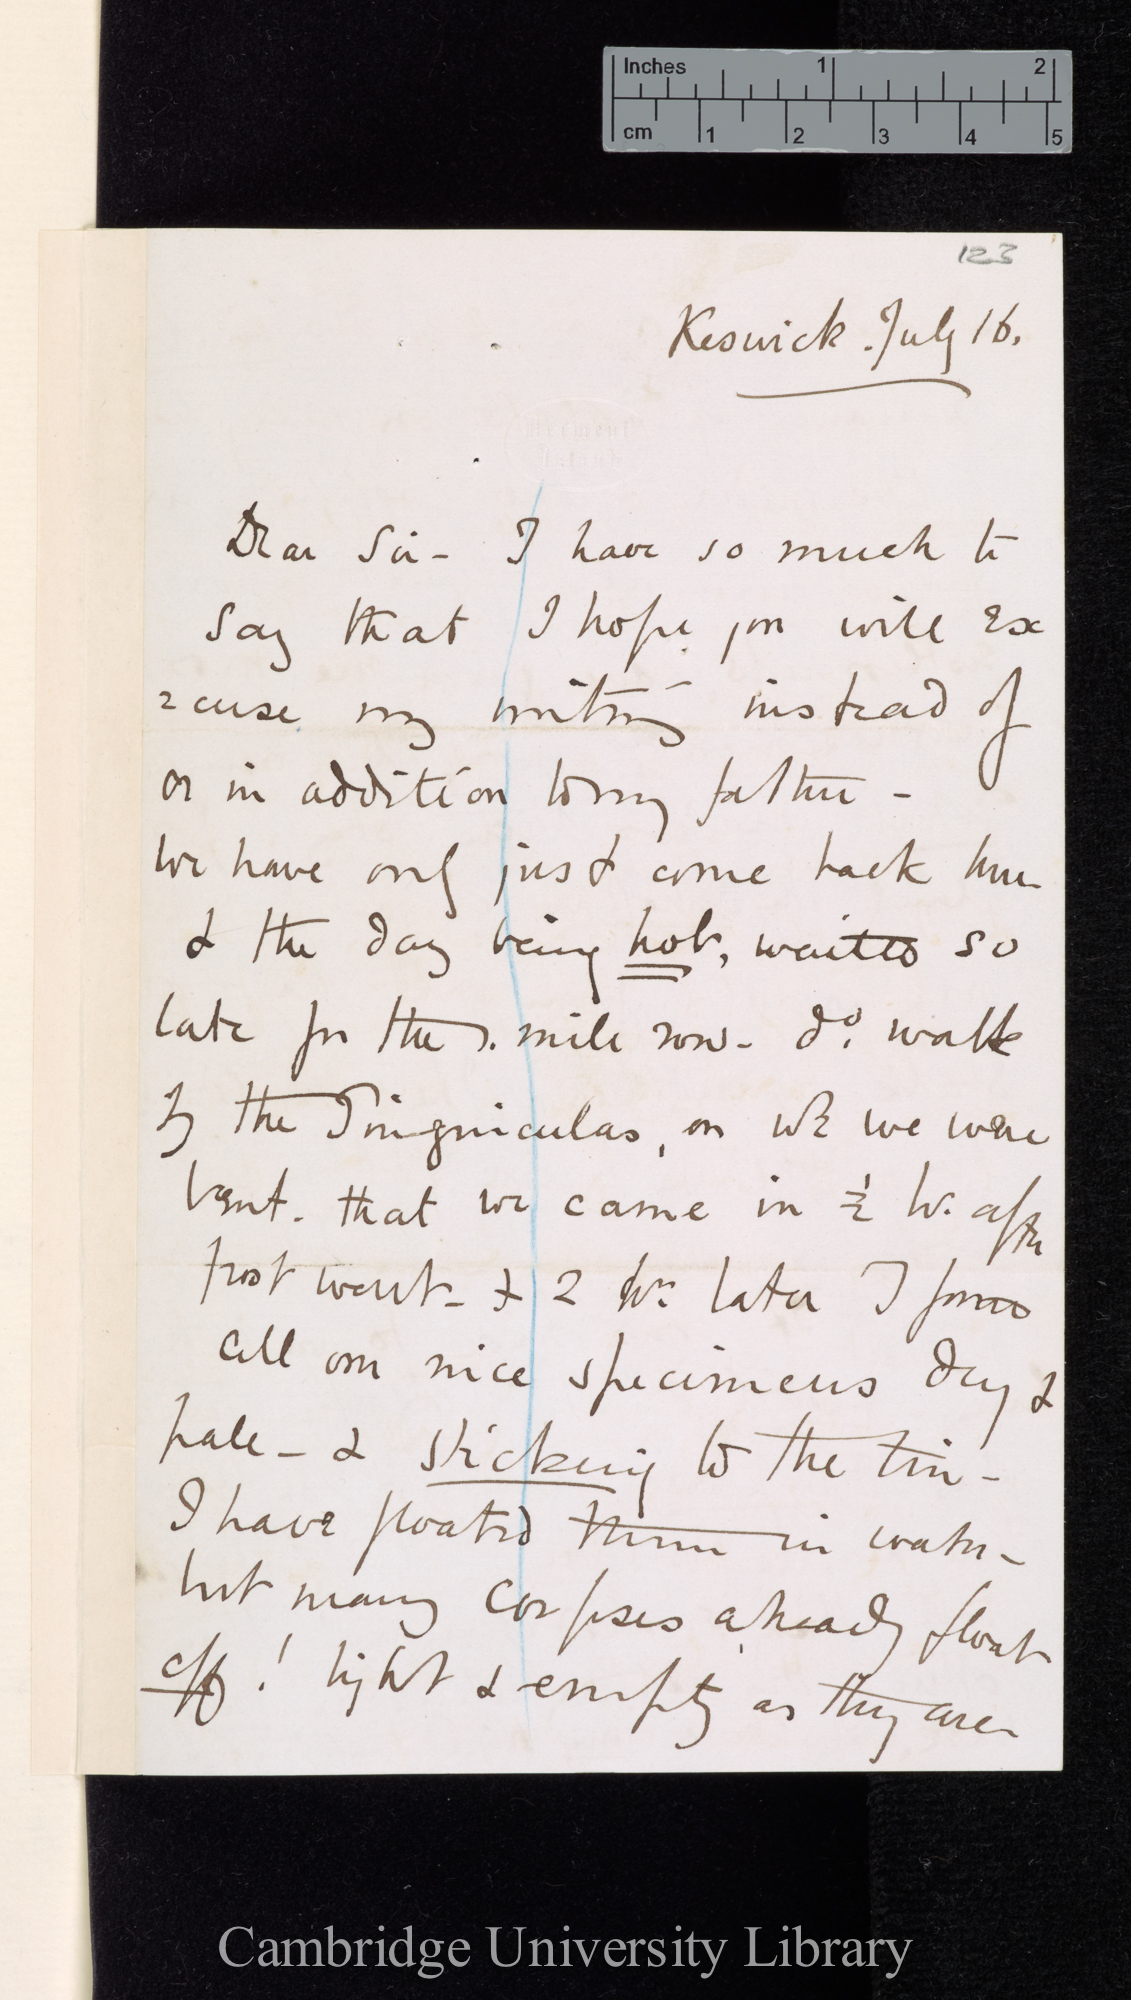 Inches 1 2
cm 1 2 3 4 5
123
Keswick. July 16.
Dear Sir - I have so much to
say that I hope you will ex
=cuse my writing instead of
or in addition to my father -
We have only just come back here
& the day being hot, waited so
late for the . mile row - do. walk
by the Pinguiculas, on wh we were
bent. that we came in ½ hr. after
post went - & 2 hrs later I found
all our nice specimens dry &
pale - & sticking to the tin -
I have floated them in water -
but many corpses already float
off! light & empty as they are
Cambridge University Library